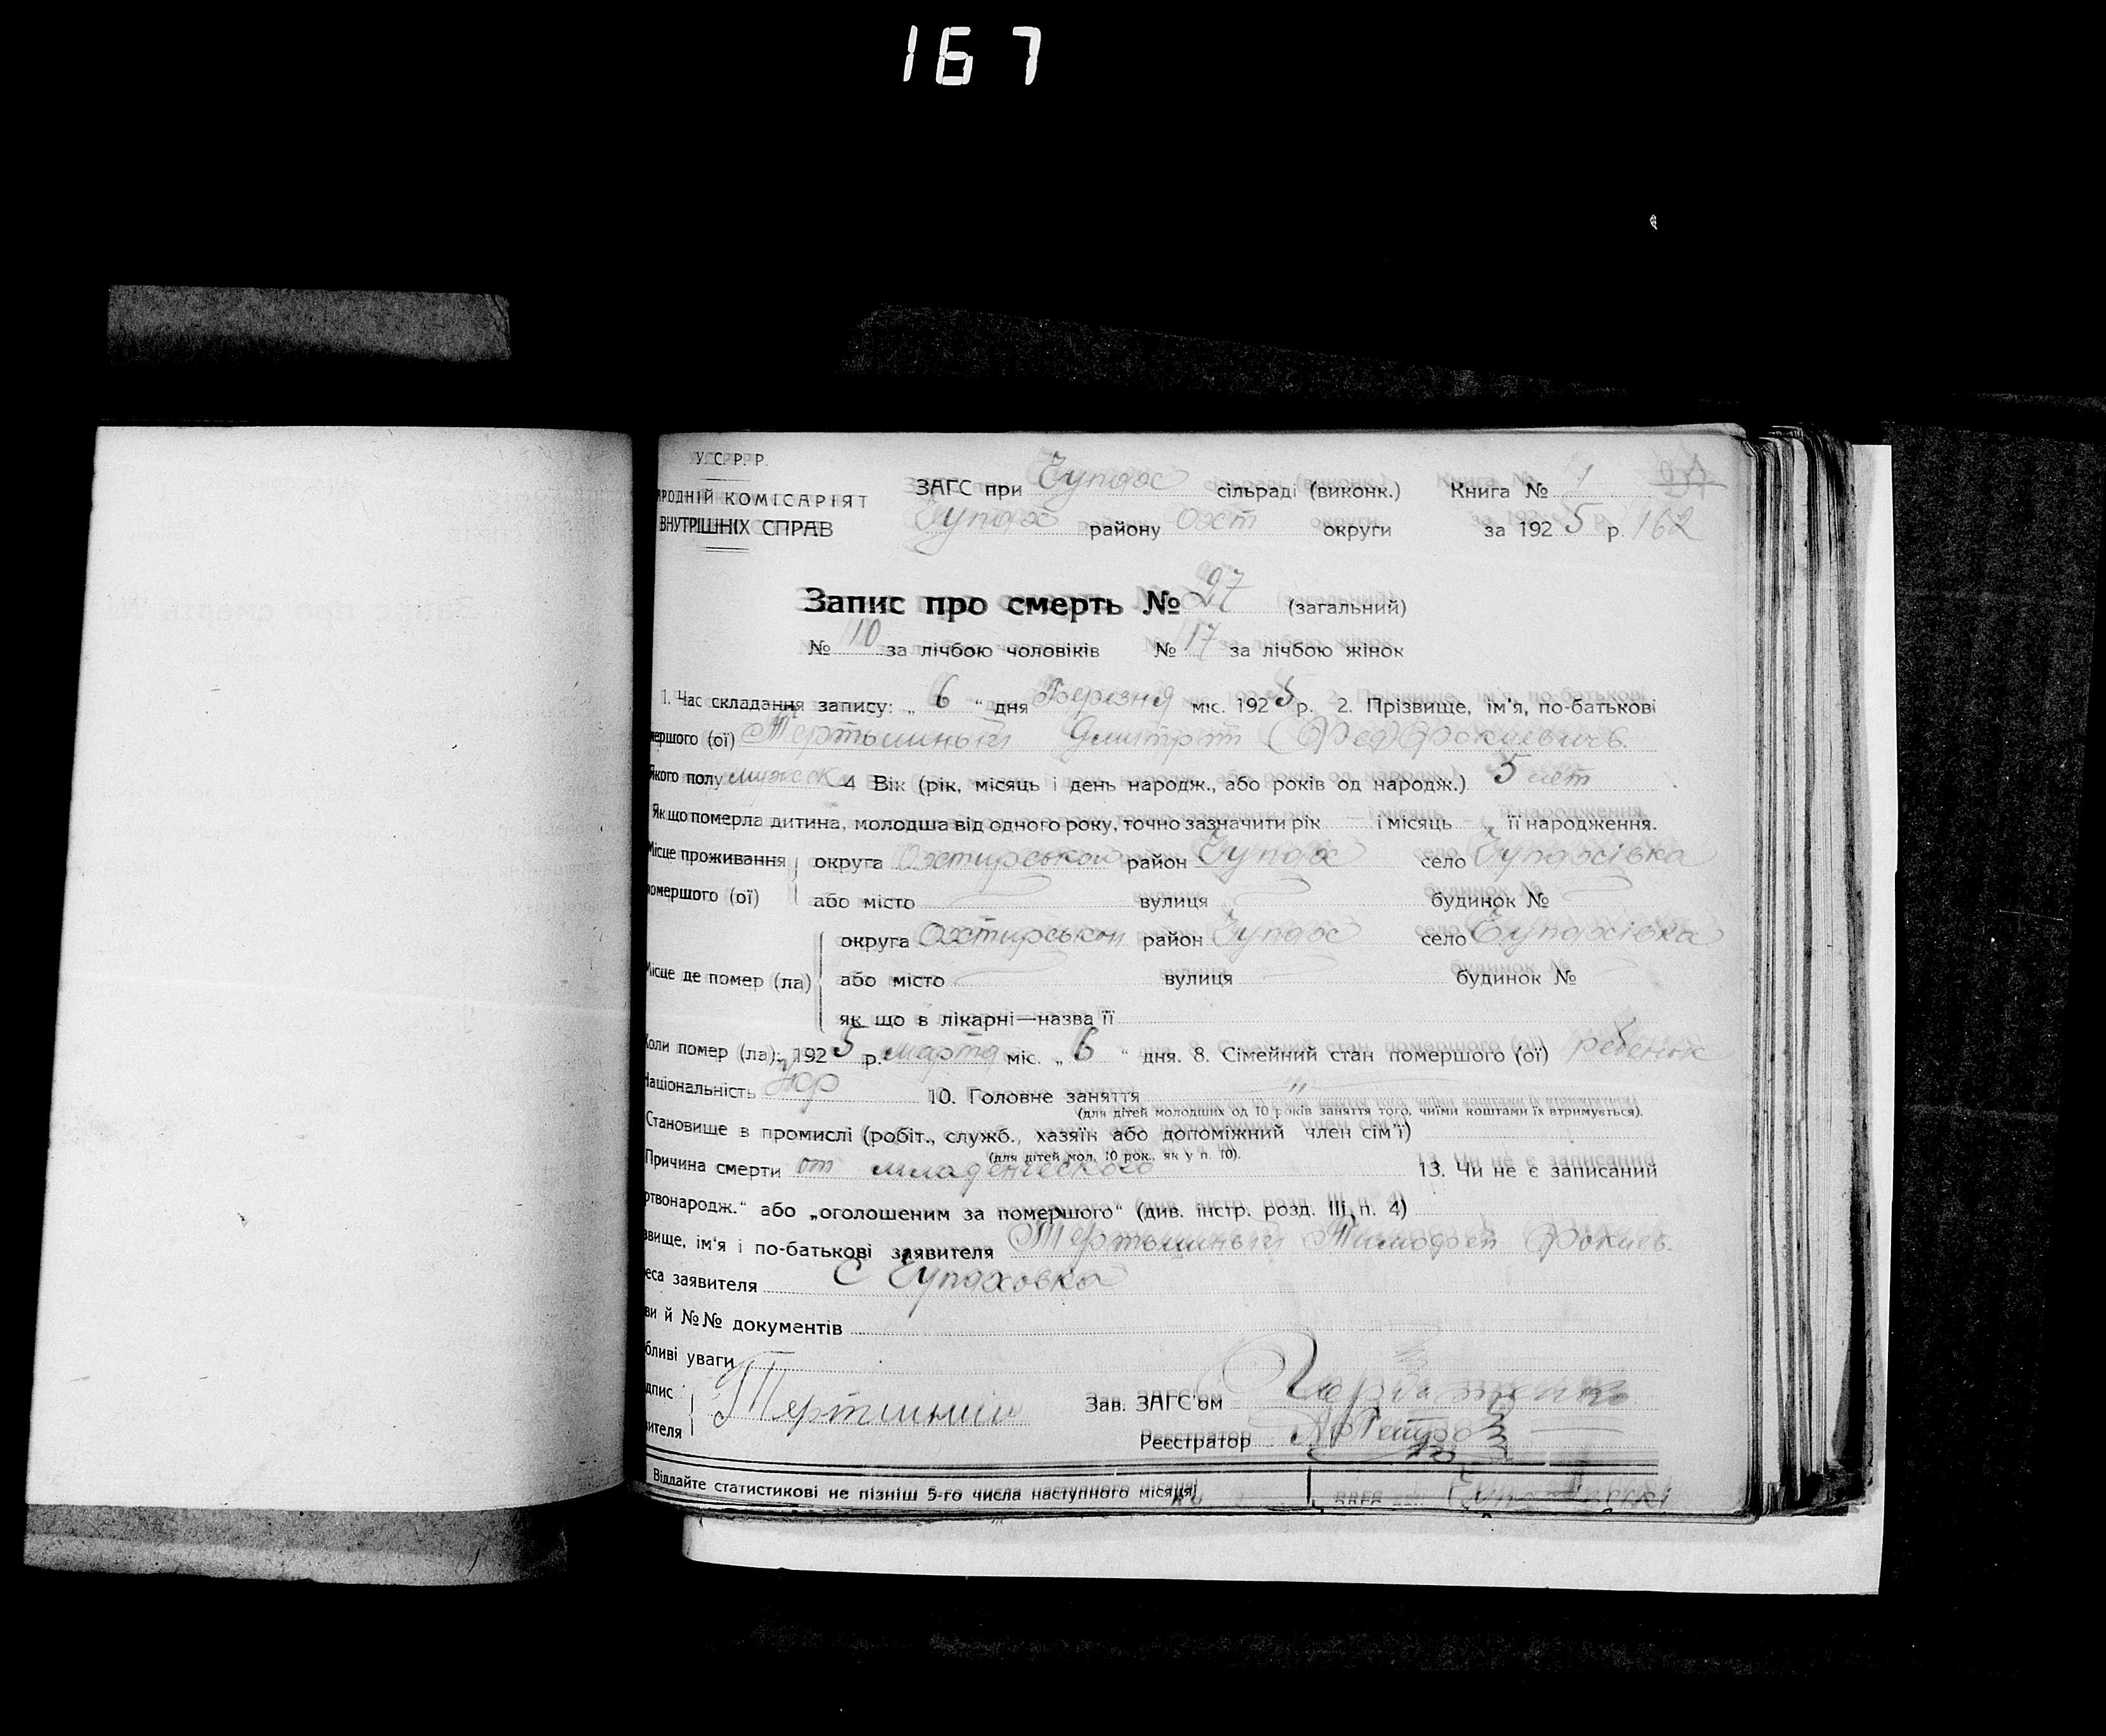 167
У.С.Р.Р.
РОДНІЙ КОМІСАРІЯТ
ВНУТРІШНІХ СПРАВ
ЗАГС при Чупах сільраді (виконк.) Книга № 1
Чупах району Охт округи за 1925 р. 162
Запис про смерть № 27 (загальний)
№ 10 за лічбою чоловіків № 17 за лічбою жінок
1. Час складання запису: „ 6 “ дня Березня міс. 1925 р. 2. Прізвище, ім'я, по-батькові
мершого (ої) Тертышный Дмитр
якого полу мужск 4 Вік (рік, місяць і день народж., або років од народж.) 5 лет
Якщо померла дитина, молодша від одного року, точно зазначити рік і місяць її народження.
Місце проживання округа Охтирськои район Чупах село Чупахівка
помершого (ої) або місто вулиця будинок №
округа Охтирськои район Чупах село Чупахівка
Місце де помер (ла) або місто вулиця будинок №
як що в лікарні—назва її
Коли помер (ла): 1925 р. марта міс. „ 6 “ дня. 8. Сімейний стан помершого (ої) ребенок
Національність Укр 10. Головне заняття "
(для дітей молодших од 10 років заняття того, чиїми коштами їх втримується).
Становище в промислі (робіт., служб., хазяїн або допоміжний член сім'ї)
(для дітей мол. 10 рок., як у п. 10).
Причина смерти от младенческого 13. Чи не є записаний
ртвонародж.“ або „оголошеним за помершого“ (див. інстр. розд. III, п. 4)
звище, ім'я і по-батькові заявителя Тертышный Тимофей Фокиев.
еса заявителя С Чупаховка
ви й №№ документів
бливі уваги
дпис Тертишний Зав. ЗАГС'ом
вителя Реєстратор
Віддайте статистикові не пізніш 5-го числа наступного місяця!